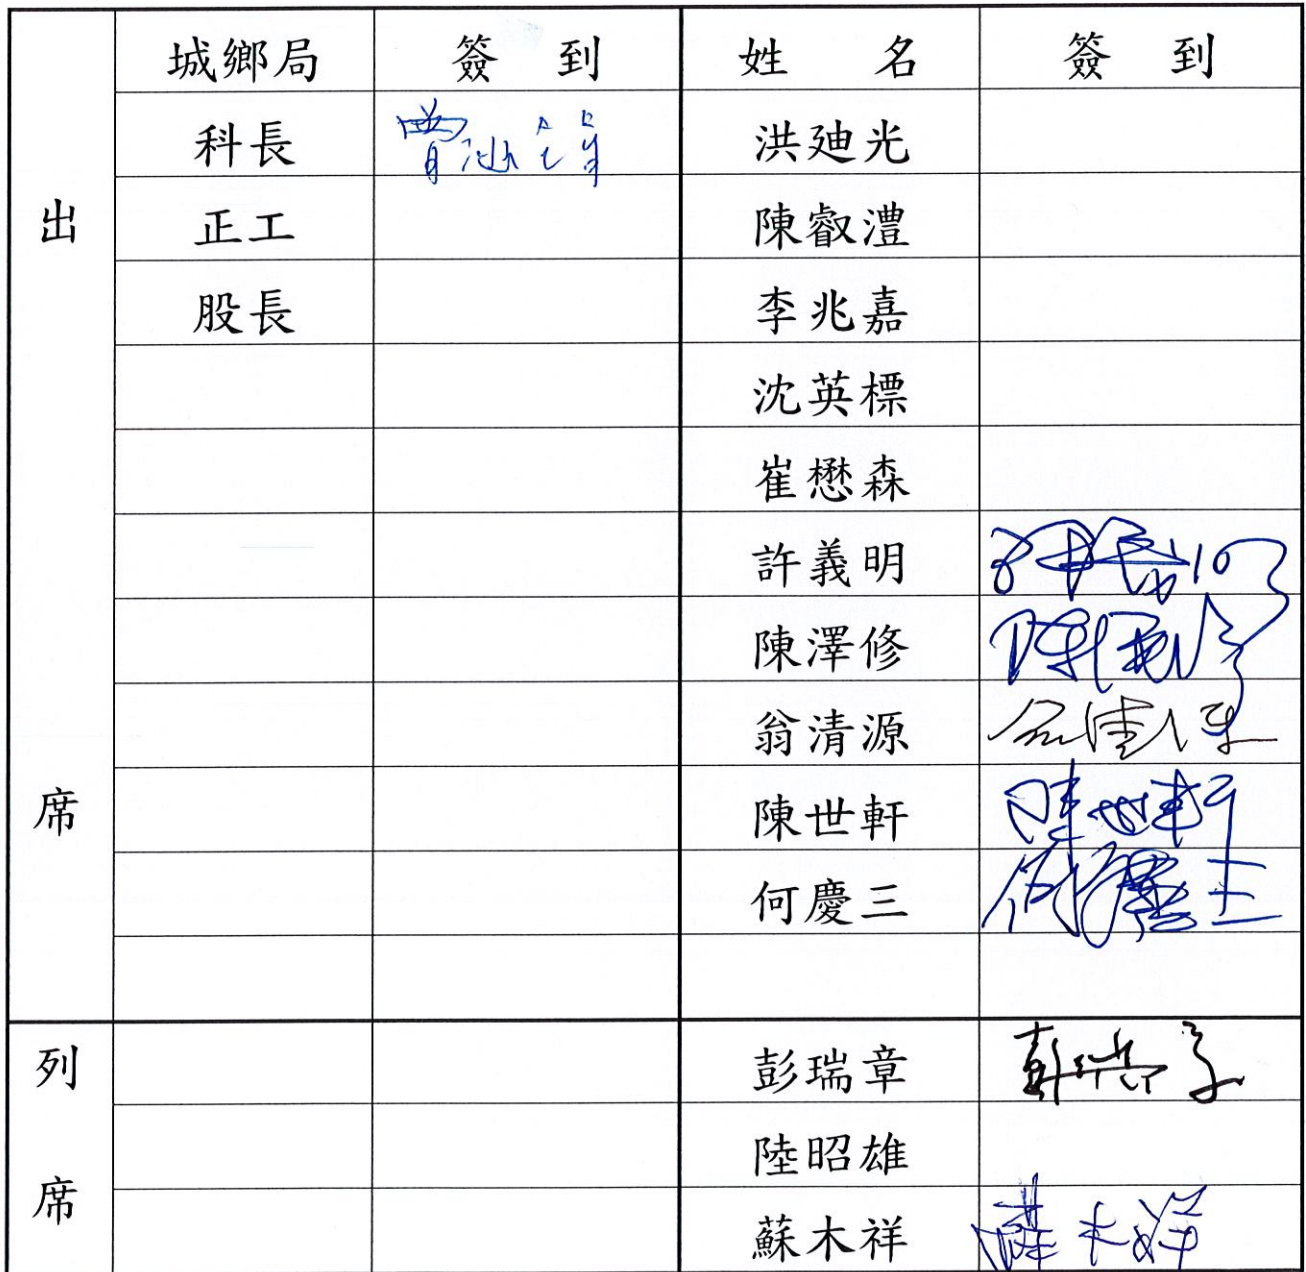 城鄉局 簽到 姓名 簽到
科長 洪廸光
出 正工 陳叡澧
股長 李兆嘉
沈英標
崔懋森
許義明 許義明
陳澤修
翁清源 翁清源
席 陳世軒 陳世軒
何慶三 何慶三
列 彭瑞章 彭瑞章
陸昭雄
席 蘇木祥 蘇木祥